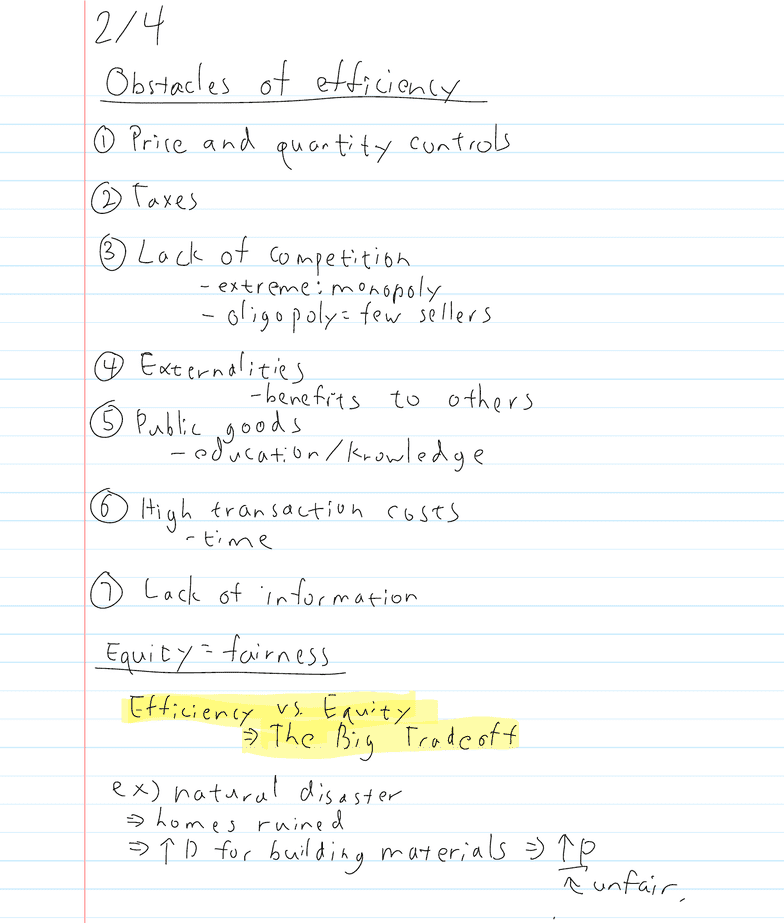 2/4
Obstacles of efficiency
① Price and quantity controls
② Taxes
③ Lack of competition
- extreme: monopoly
- oligopoly = few sellers
④ Externalities
- benefits to others
⑤ Public goods
- education/knowledge
⑥ High transaction costs
- time
⑦ Lack of information
Equity = fairness
Efficiency vs. Equity
⇒ The Big Tradeoff
ex) natural disaster
⇒ homes ruined
⇒ ↑ D for building materials ⇒ ↑p
↖ unfair.